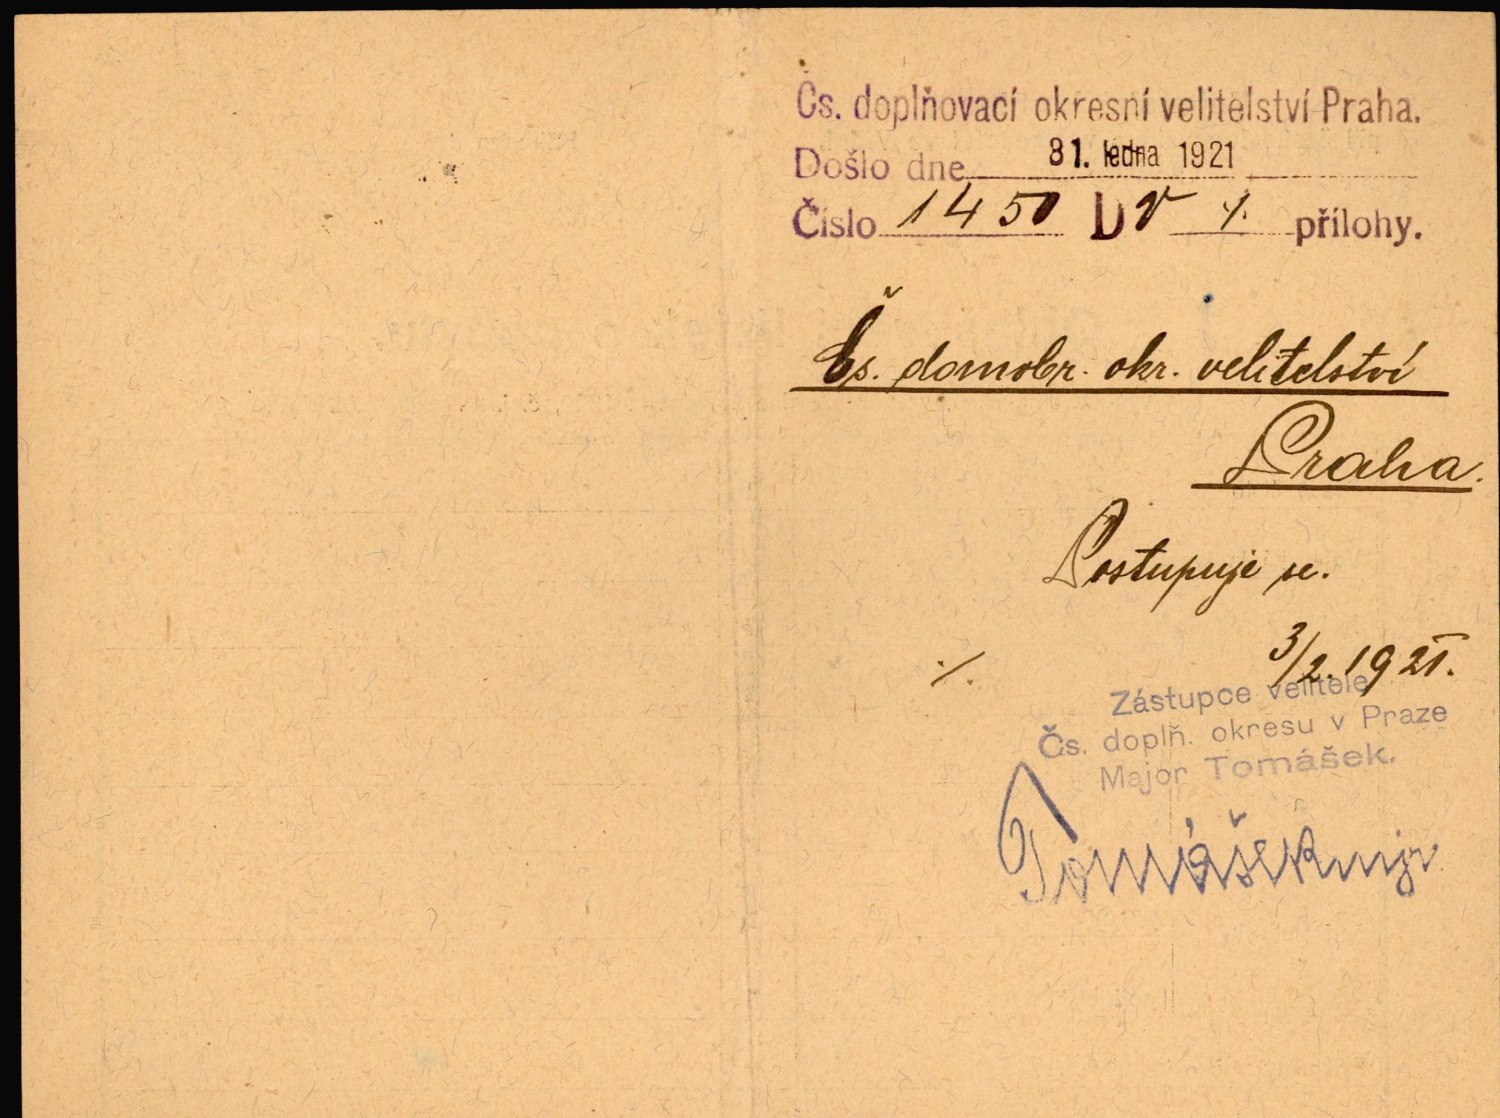 Čs. doplňovací okresní velitelství Praha.
Došlo dne 31. ledna 1921
Číslo 1450 Dv ·/. přílohy.
Čs. domobr. okr. velitelství
Praha.
Postupuje se.
·/. 3/2. 1921.
Zástupce velitele
Čs. doplň. okresu v Praze
Major Tomášek.
Tomášek mjr